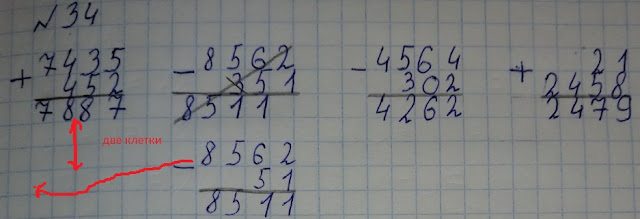 № 34
7435
+ 452
7887
− 8562
351
8511
− 4564
302
4262
+ 21
2458
2479
две клетки
− 8562
51
8511